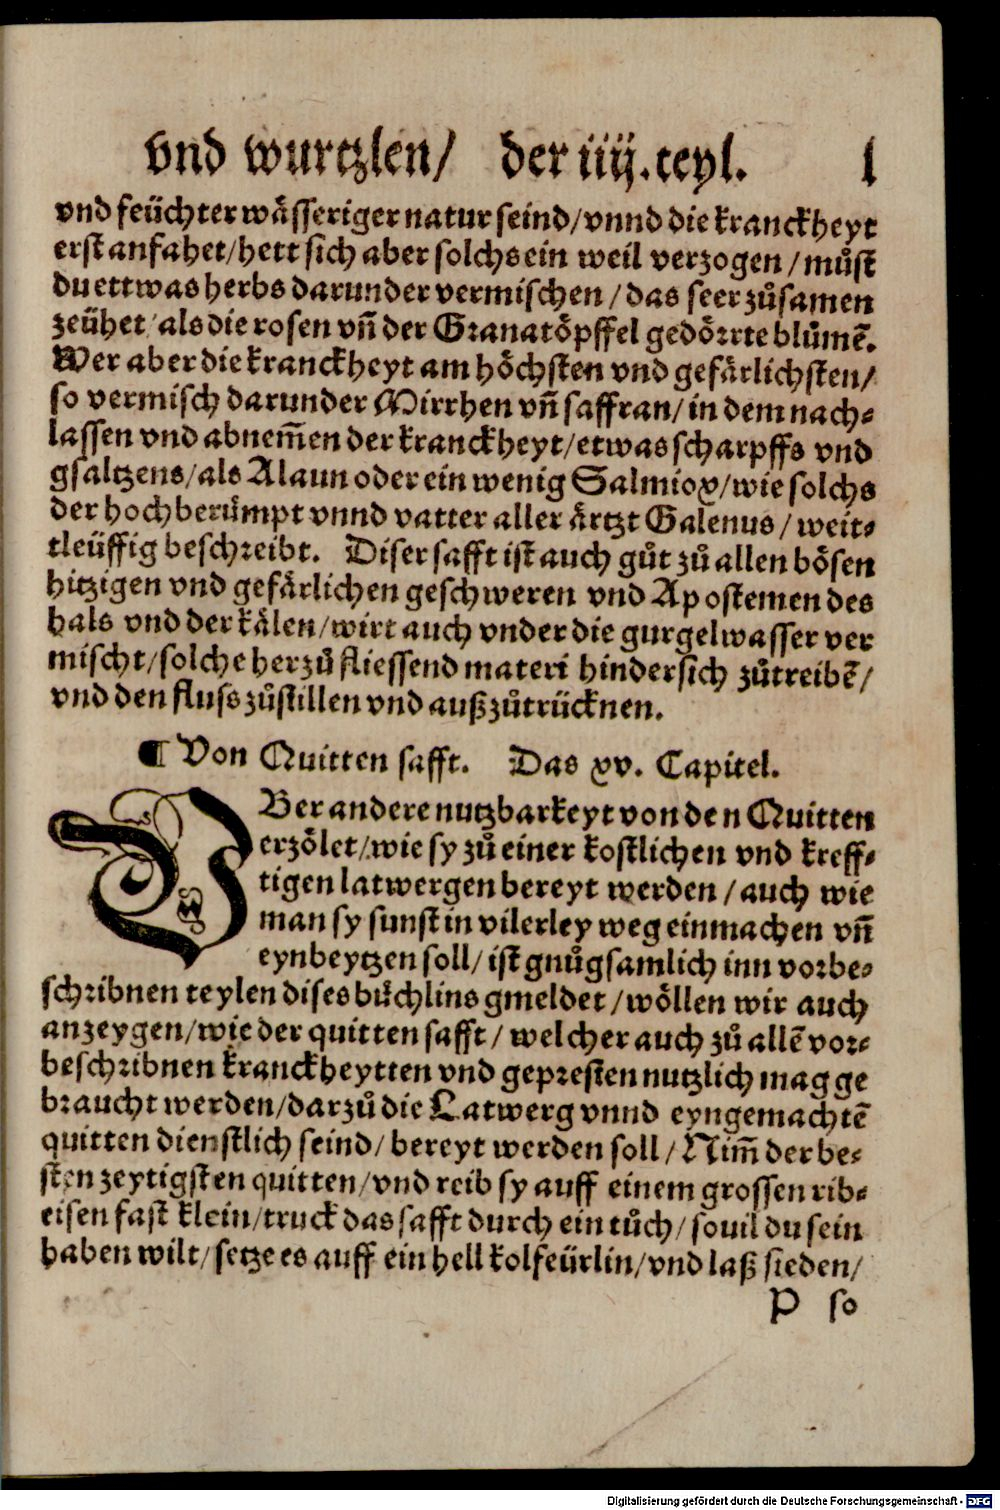 vnd wurtzlen/ der iiij. teyl. l
vnd feüchter wässeriger natur seind/ vnnd die kranckheyt
erst anfahet/ hett sich aber solchs ein weil verzogen/ můst
du ettwas herbs darunder vermischen/ das seer zůsamen
zeühet/ als die rosen vñ der Granatöpffel gedörrte blůmẽ.
Wer aber die kranckheyt am höchsten vnd gefärlichsten/
so vermisch darunder Mirrhen vñ saffran/ in dem nach⸗
lassen vnd abnem̃en der kranckheyt/ etwas scharpffs vnd
gsaltzens/ als Alaun oder ein wenig Salmiox/ wie solchs
der hochberůmpt vnnd vatter aller ärtzt Galenus/ weit⸗
tleüffig beschreibt. Diser safft ist auch gůt zů allen bösen
hitzigen vnd gefärlichen geschweren vnd Apostemen des
hals vnd der kälen/ wirt auch vnder die gurgelwasser ver
mischt/ solche herzů fliessend materi hindersich zůtreibẽ/
vnd den fluss zůstillen vnd außzůtrücknen.
¶ Von Quitten safft. Das xv. Capitel.
VBer andere nutzbarkeyt von den Quitten
erzölet/ wie sy zů einer kostlichen vnd kreff⸗
tigen latwergen bereyt werden/ auch wie
man sy sunst in vilerley weg einmachen vñ
eynbeytzen soll/ ist gnůgsamlich inn vorbe⸗
schribnen teylen dises bůchlins gmeldet/ wöllen wir auch
anzeygen/ wie der quitten safft/ welcher auch zů allẽ vor⸗
beschribnen kranckheytten vnd gepresten nutzlich mag ge
braucht werden/ darzů die Latwerg vnnd eyngemachtẽ
quitten dienstlich seind/ bereyt werden soll/ Nim̃ der be⸗
sten zeytigsten quitten/ vnd reib sy auff einem grossen rib⸗
eisen fast klein/ truck das safft durch ein tůch/ souil du sein
haben wilt/ setze es auff ein hell kolfeürlin/ vnd laß sieden/
P so
Digitalisierung gefördert durch die Deutsche Forschungsgemeinschaft - DFG